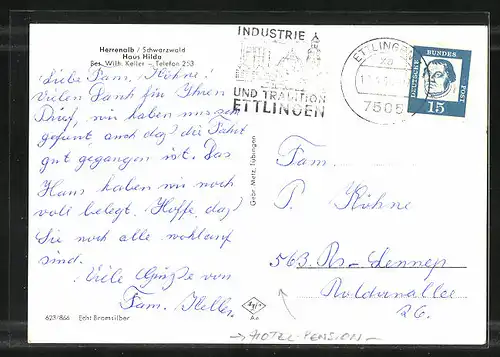 Herrenalb / Schwarzwald
Haus Hilda
Bes. Wilh. Keller – Telefon 253
Liebe Fam. Köhne!
Vielen Dank für Ihren
Brief, wir haben uns sehr
gefreut, auch daß die Fahrt
gut gegangen ist. Das
Haus haben wir noch
voll belegt. Hoffe, daß
Sie noch alle wohlauf
sind.
Viele Grüße von
Fam. Keller.
623/866 Echt Bromsilber
Gebr. Metz, Tübingen
INDUSTRIE
UND TRADITION
ETTLINGEN
ETTLINGEN
7505
DEUTSCHE BUNDESPOST
15
Fam.
P. Köhne
563 Rs-Lennep
26.
→ HOTEL-PENSION –